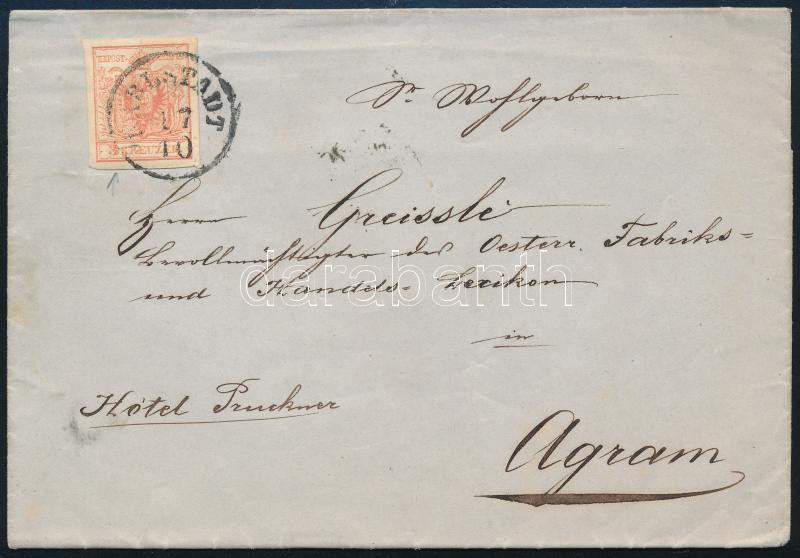 K.K. POST-STEMPEL
3 KREUZER
CARLSTADT
17
10
Sr Wohlgeborn
Herrn Greisslé
Bevollmächtigter des Oesterr. Fabriks=
und Handels= Lexikon
in
Hôtel Pruckner
Agram
darabanth